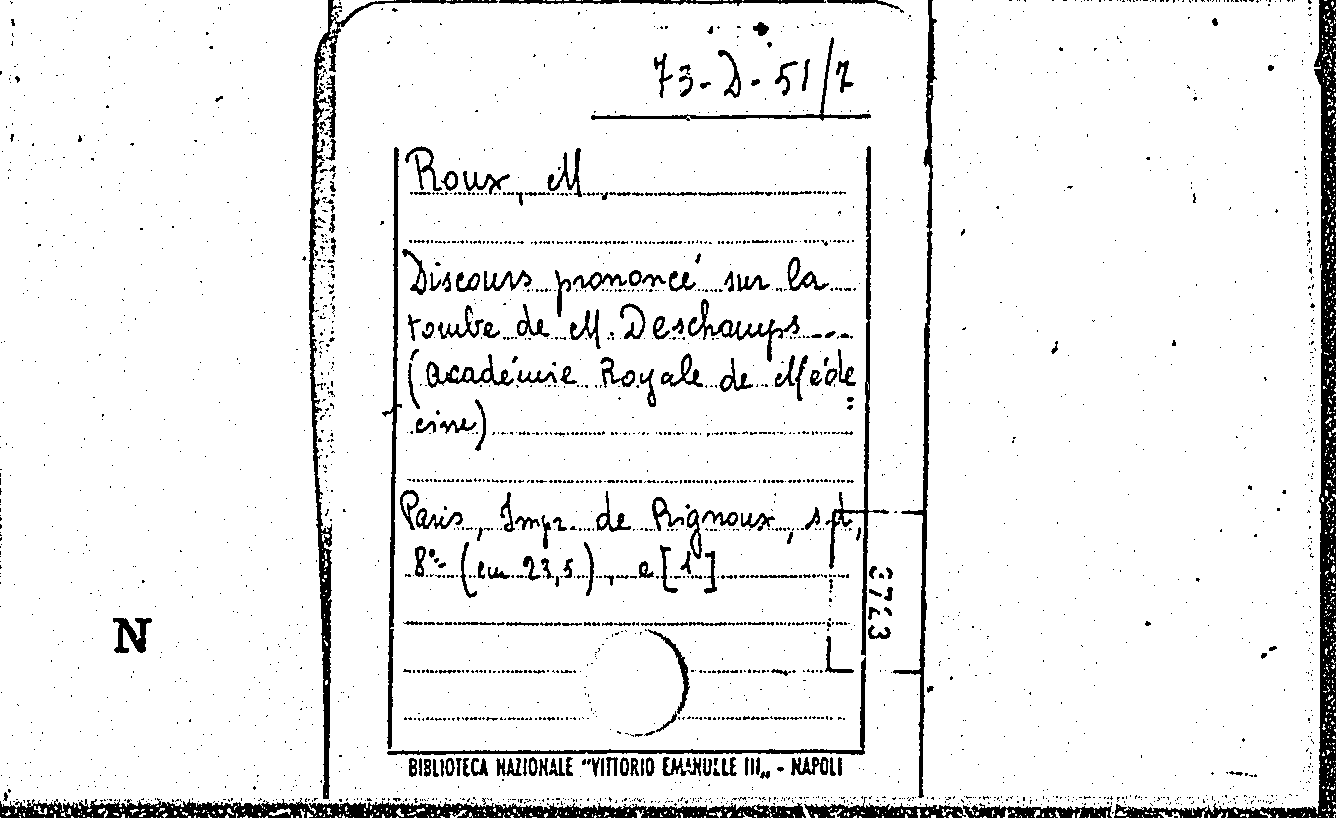 73-D-51/7
Roux, M.
Discours prononcé sur la
tombe de M. Deschamps ...
(Académie Royale de Méde=
cine)
Paris, Impr. de Rignoux, s.d,
8º- (cm 23,5), c [1]
3723
N
BIBLIOTECA NAZIONALE "VITTORIO EMANUELE III„ - NAPOLI